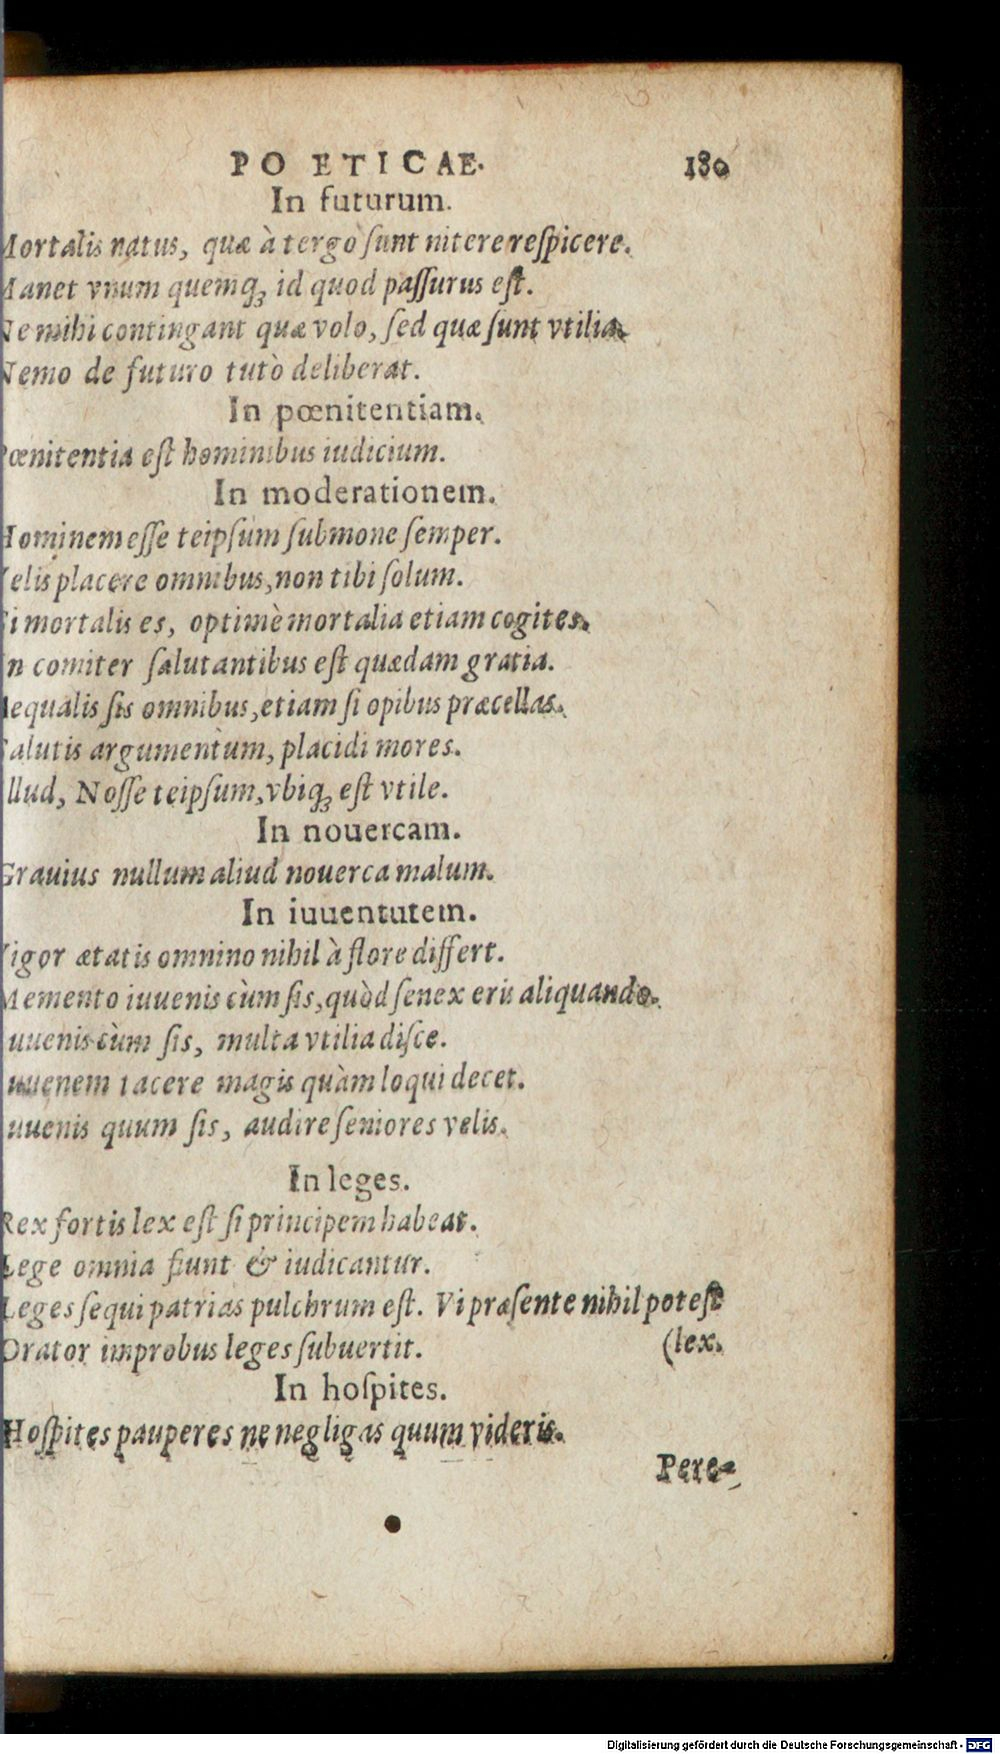 POETICAE. 180
In futurum.
Mortalis natus, quæ à tergo ſunt nitere reſpicere.
Manet vnum quemq;, id quod paſſurus eſt.
Ne mihi contingant quæ volo, ſed quæ ſunt vtilia.
Nemo de futuro tutò deliberat.
In pœnitentiam.
Pœnitentia eſt hominibus iudicium.
In moderationem.
Hominem eſſe teipſum ſubmone ſemper.
Velis placere omnibus, non tibi ſolum.
Si mortalis es, optimè mortalia etiam cogites.
In comiter ſalutantibus eſt quædam gratia.
Aequalis ſis omnibus, etiam ſi opibus præcellas.
Salutis argumentum, placidi mores.
Illud, Noſſe teipſum, vbiq; eſt vtile.
In nouercam.
Grauius nullum aliud nouerca malum.
In iuuentutem.
Vigor ætatis omnino nihil à flore differt.
Memento iuuenis cùm ſis, quòd ſenex eris aliquando.
Iuuenis cùm ſis, multa vtilia diſce.
Iuuenem tacere magis quàm loqui decet.
Iuuenis quum ſis, audire ſeniores velis.
In leges.
Rex fortis lex eſt ſi principem habeat.
Lege omnia fiunt & iudicantur.
Leges ſequi patrias pulchrum eſt. Vi præſente nihil poteſt
Orator improbus leges ſubuertit. (lex.
In hoſpites.
Hoſpites pauperes ne negligas quum videris.
Pere-
Digitalisierung gefördert durch die Deutsche Forschungsgemeinschaft - DFG